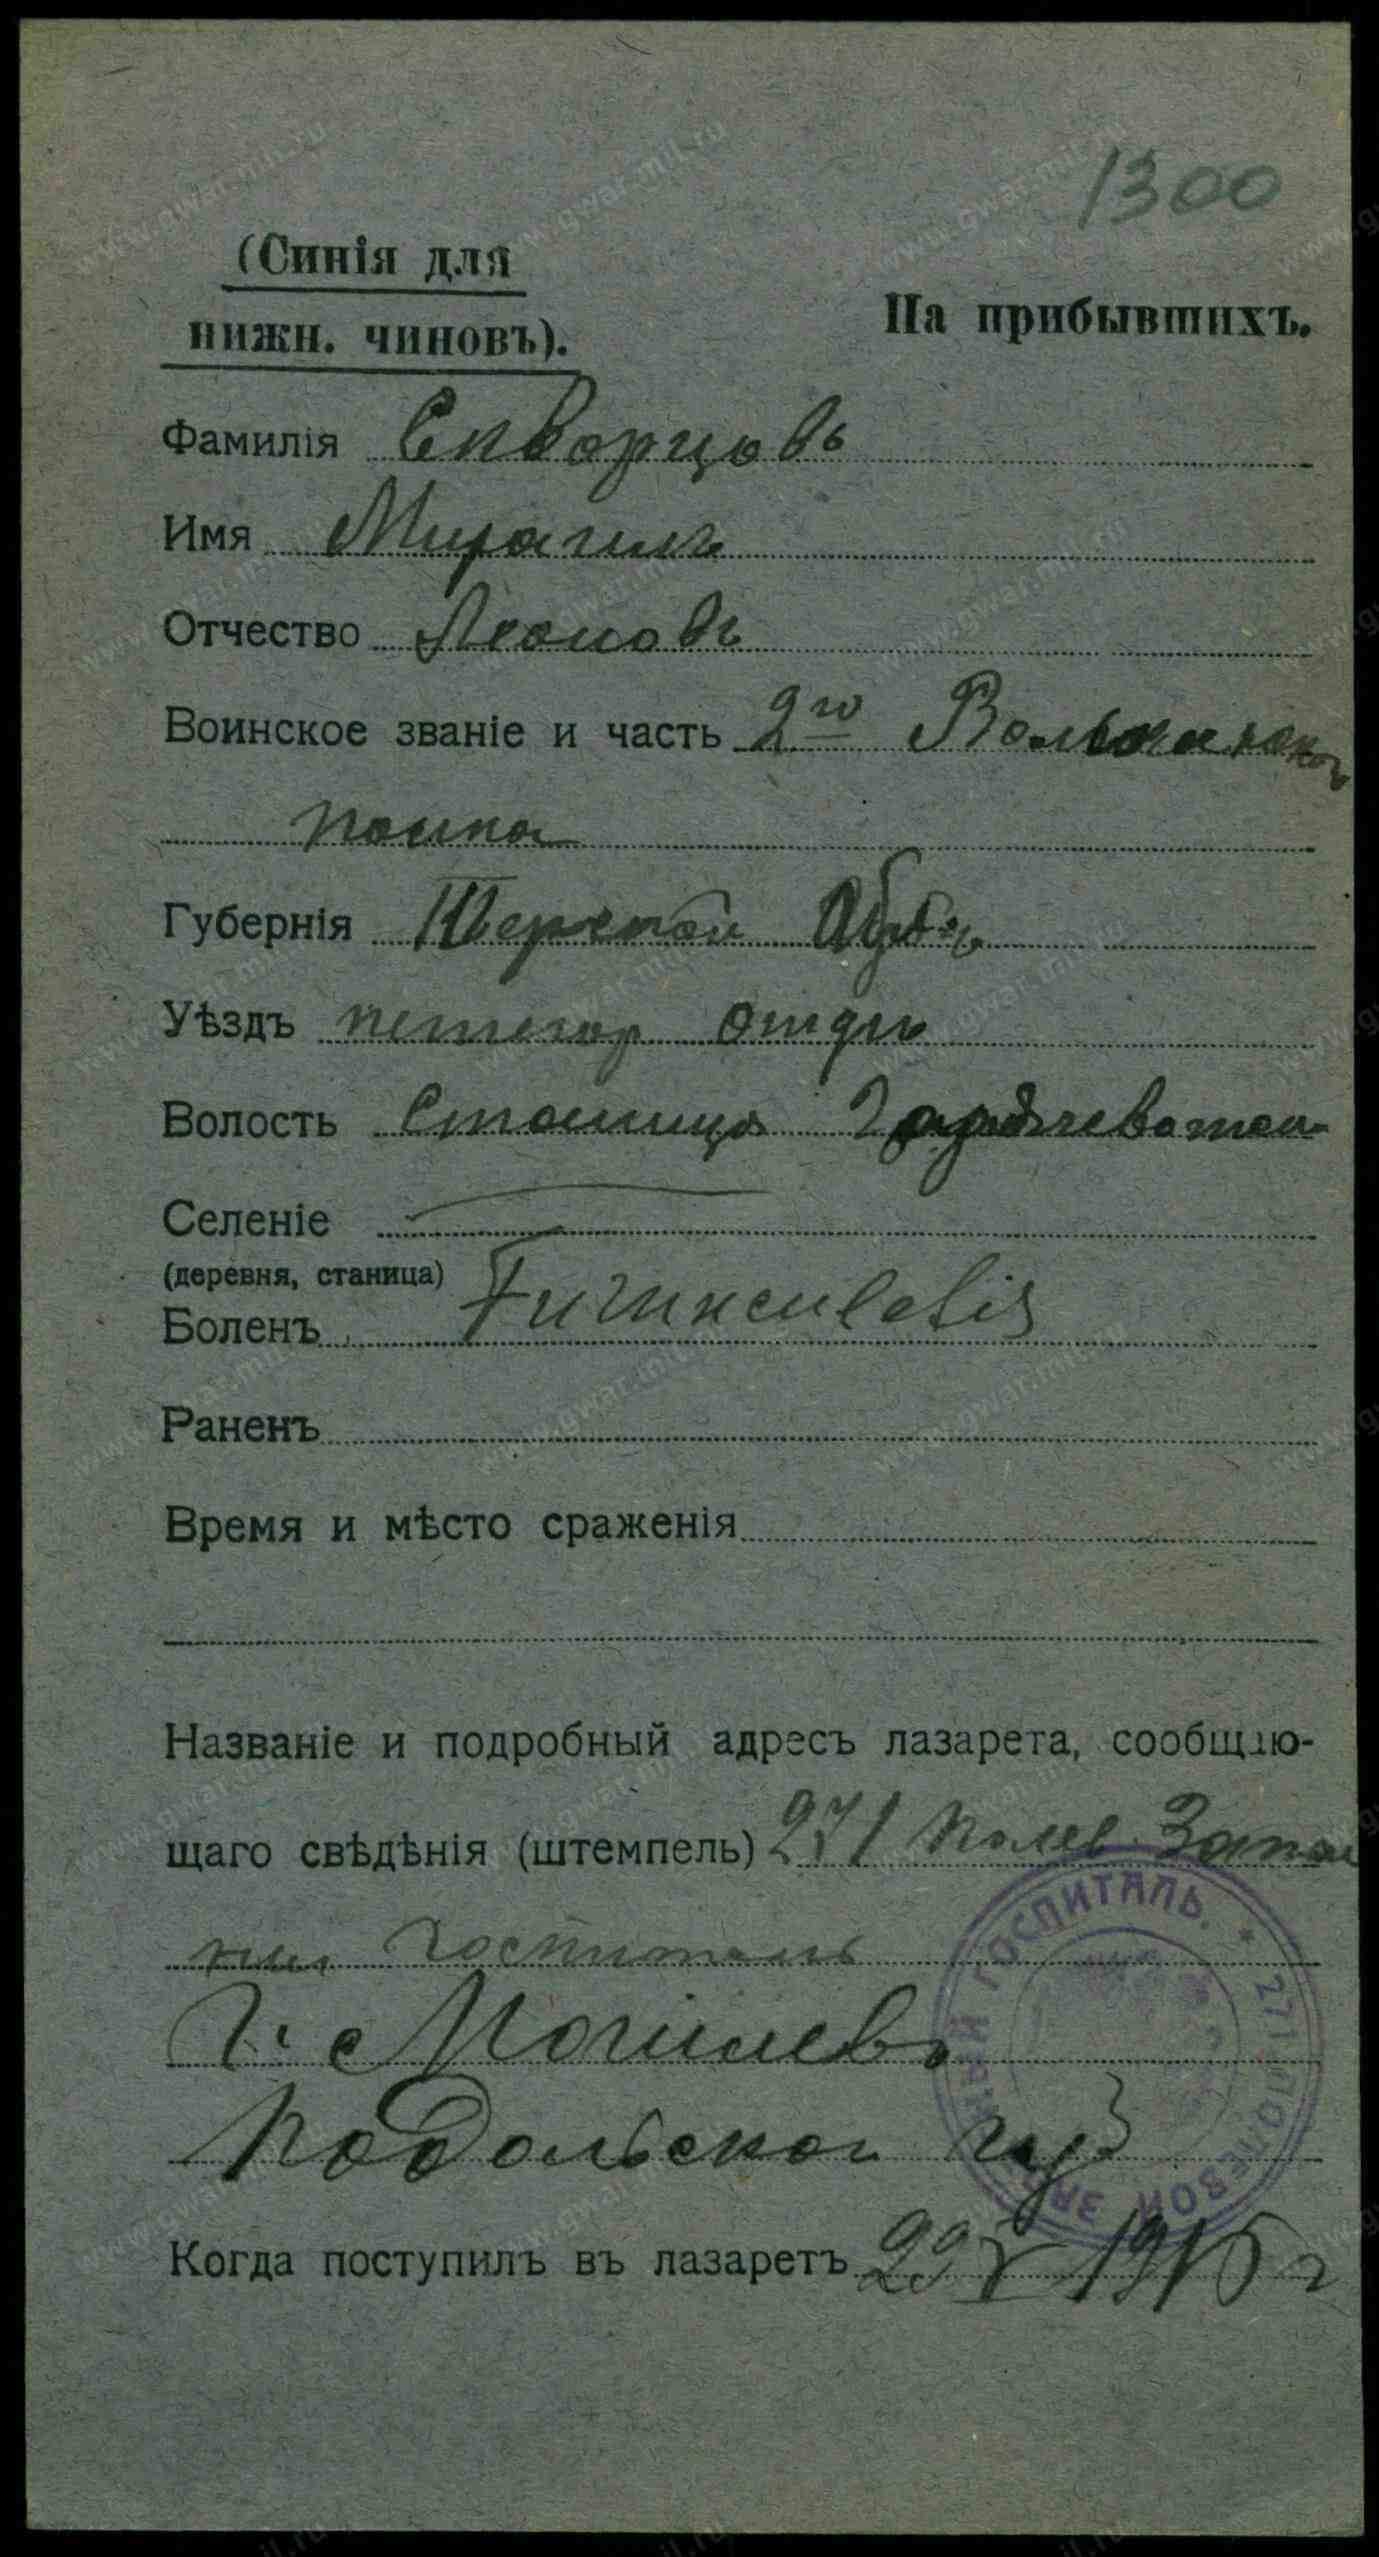 1300
(Синія для
нижн. чиновъ).
На прибывшихъ.
Фамилія Скворцовъ
Имя
Отчество Леоновъ
Воинское званіе и часть 2го
полка
Губернія Терской Обл.
Уѣздъ петегор отдъ
Волость Станица
Селеніе
(деревня, станица)
Боленъ Furunculosis
Раненъ
Время и мѣсто сраженія
Названіе и подробный адресъ лазарета, сообщаю-
щаго свѣдѣнія (штемпель) 271 полев. Запас
ный госпиталь
г. Могилевъ
Подольской губ
Когда поступилъ въ лазаретъ 29 V 1915 г
271 ПОЛЕВОЙ ЗАПАСНЫЙ ГОСПИТАЛЬ.
www.gwar.mil.ru